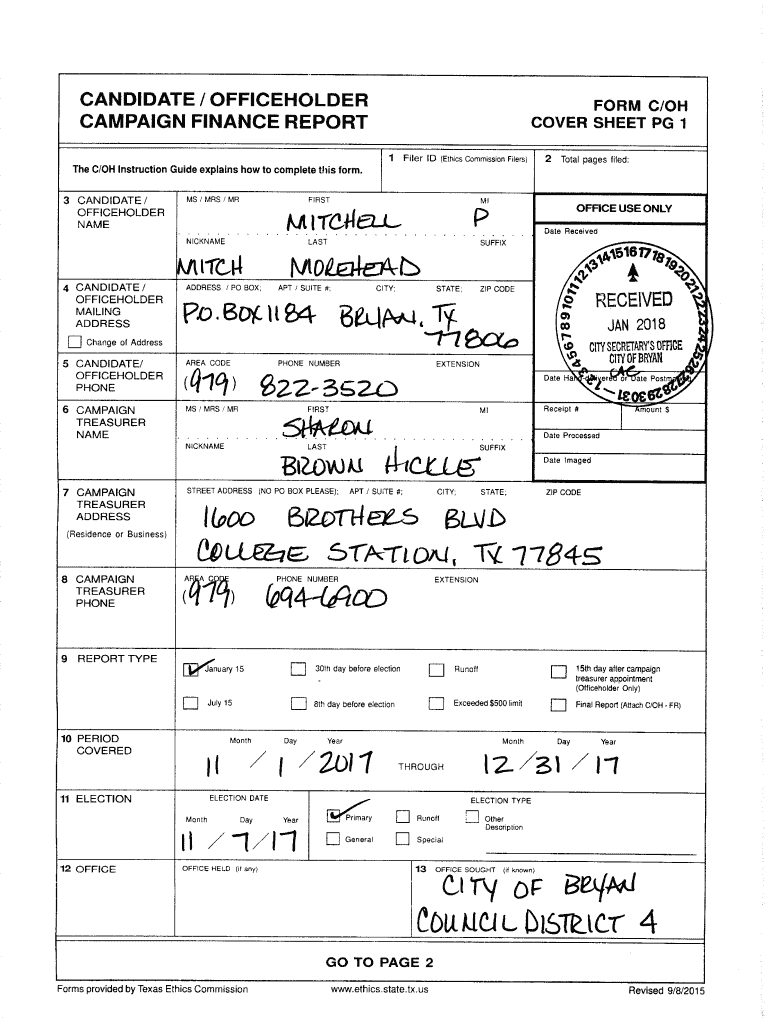 CANDIDATE / OFFICEHOLDER
CAMPAIGN FINANCE REPORT
FORM C/OH
COVER SHEET PG 1
The C/OH Instruction Guide explains how to complete this form.
1 Filer ID (Ethics Commission Filers)
2 Total pages filed:
3 CANDIDATE /
OFFICEHOLDER
NAME
MS / MRS / MR FIRST MI
MITCHELL P
NICKNAME LAST SUFFIX
MITCH MOREHEAD
OFFICE USE ONLY
Date Received
RECEIVED
JAN 2018
CITY SECRETARY'S OFFICE
CITY OF BRYAN
Date Hand-delivered or Date Postmarked
Receipt # Amount $
Date Processed
Date Imaged
4 CANDIDATE /
OFFICEHOLDER
MAILING
ADDRESS
Change of Address
ADDRESS / PO BOX; APT / SUITE #; CITY; STATE; ZIP CODE
P.O. BOX 1184 BRYAN, TX
77806
5 CANDIDATE/
OFFICEHOLDER
PHONE
AREA CODE PHONE NUMBER EXTENSION
(979) 822-3520
6 CAMPAIGN
TREASURER
NAME
MS / MRS / MR FIRST MI
SHARON
NICKNAME LAST SUFFIX
BROWN HICKLE
7 CAMPAIGN
TREASURER
ADDRESS
(Residence or Business)
STREET ADDRESS (NO PO BOX PLEASE); APT / SUITE #; CITY; STATE; ZIP CODE
1600 BROTHERS BLVD
COLLEGE STATION, TX 77845
8 CAMPAIGN
TREASURER
PHONE
AREA CODE PHONE NUMBER EXTENSION
(979) 694-6900
9 REPORT TYPE
January 15 30th day before election Runoff 15th day after campaign
treasurer appointment
(Officeholder Only)
July 15 8th day before election Exceeded $500 limit Final Report (Attach C/OH - FR)
10 PERIOD
COVERED
Month Day Year Month Day Year
11 / 1 / 2017 THROUGH 12 / 31 / 17
11 ELECTION
ELECTION DATE
Month Day Year
11 / 7 / 17
ELECTION TYPE
Primary Runoff Other
Description
General Special
12 OFFICE
OFFICE HELD (if any)
13 OFFICE SOUGHT (if known)
CITY OF BRYAN
COUNCIL DISTRICT 4
GO TO PAGE 2
Forms provided by Texas Ethics Commission www.ethics.state.tx.us Revised 9/8/2015